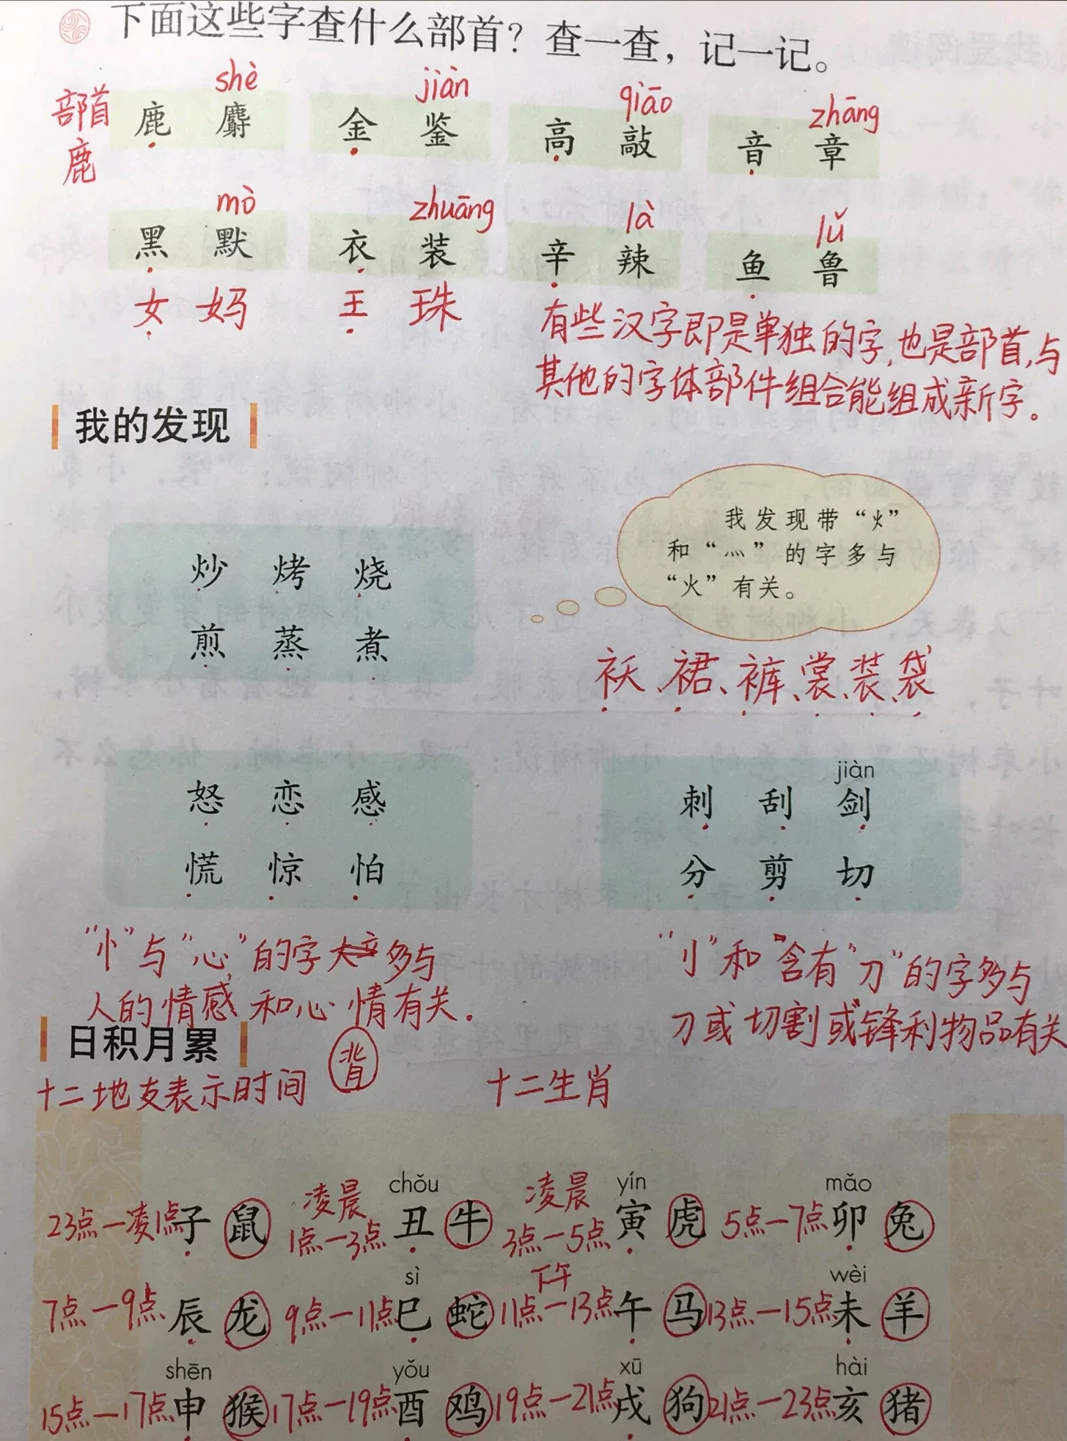 下面这些字查什么部首？查一查，记一记。
shè jiàn qiāo zhāng
部首 鹿 麝 金 鉴 高 敲 音 章
鹿
mò zhuāng là lǔ
黑 默 衣 装 辛 辣 鱼 鲁
女 妈 王 珠
有些汉字即是单独的字,也是部首,与
其他的字体部件组合能组成新字。
我的发现
我发现带“火”
和“灬”的字多与
“火”有关。
炒 烤 烧
煎 蒸 煮
袄、裙、裤、裳、装、袋
怒 恋 感
慌 惊 怕
jiàn
刺 刮 剑
分 剪 切
“忄”与“心”的字大多多与
人的情感和心情有关.
“刂”和“含有“刀”的字多与
刀或切割或锋利物品有关
日积月累 背
十二地支表示时间 十二生肖
凌晨 chǒu 凌晨 yín mǎo
23点—凌1点 子 鼠 1点—3点 丑 牛 3点—5点 寅 虎 5点—7点 卯 兔
sì 下午 wèi
7点—9点 辰 龙 9点—11点 巳 蛇 11点—13点 午 马 13点—15点 未 羊
shēn yǒu xū hài
15点—17点 申 猴 17点—19点 酉 鸡 19点—21点 戌 狗 21点—23点 亥 猪